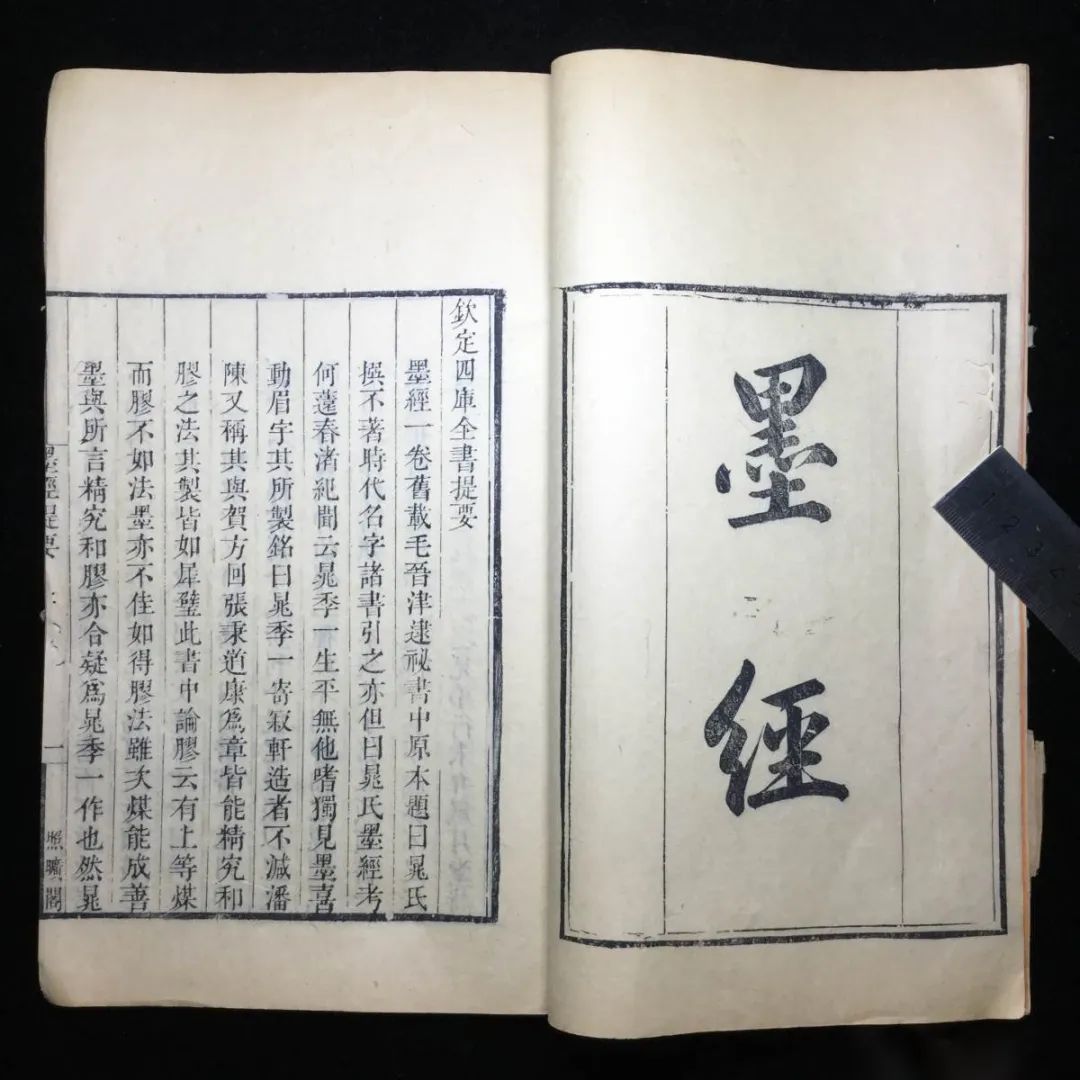 墨經
欽定四庫全書提要
墨經一卷舊載毛晉津逮祕書中原本題曰晁氏
撰不著時代名字諸書引之亦但曰晁氏墨經考
何薳春渚紀聞云晁季一生平無他嗜獨見墨喜
動眉宇其所製銘曰晁季一寄寂軒造者不減潘
陳又稱其與賀方回張秉道康爲章皆能精究和
膠之法其製皆如犀璧此書中論膠云有上等煤
而膠不如法墨亦不佳如得膠法雖次煤能成善
墨與所言精究和膠亦合疑爲晁季一作也然晁
墨經提要
一
照曠閣
1 2 3